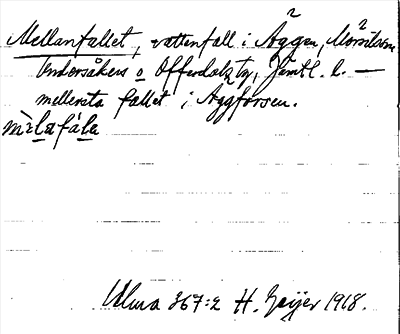 Mellanfallet, vattenfall i Äggån, Mörsils sn
Undersåkers o Offerdals tg, Jämtl. l. —
mellersta fallet i Äggforsen.
Ulma 367:2 H. Geijer 1918.